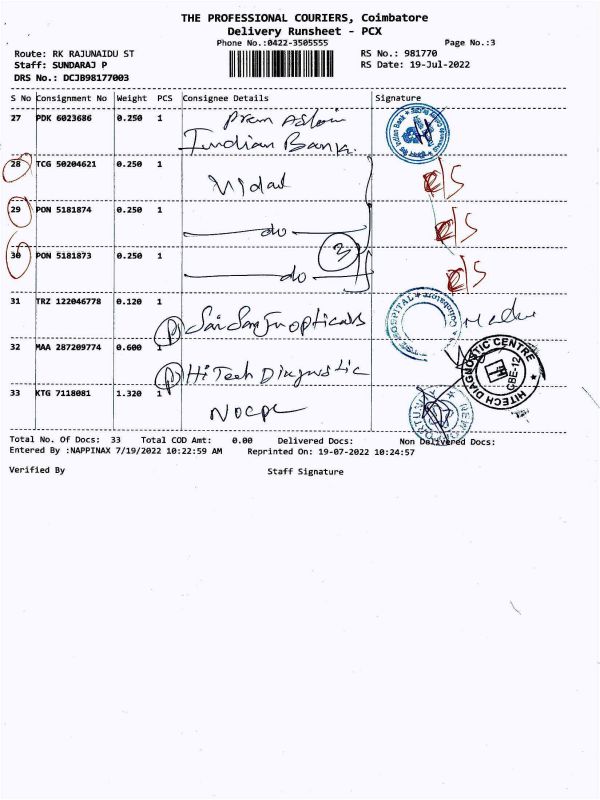 THE PROFESSIONAL COURIERS, Coimbatore
Delivery Runsheet - PCX
Phone No.:0422-3505555 Page No.:3
Route: RK RAJUNAIDU ST RS No.: 981770
Staff: SUNDARAJ P RS Date: 19-Jul-2022
DRS No.: DCJB98177003
S No Consignment No Weight PCS Consignee Details Signature
27 PDK 6023686 0.250 1 Prem
Indian Bank
28 TCG 50204621 0.250 1 Vidal
29 PON 5181874 0.250 1 do
30 PON 5181873 0.250 1 do 3
31 TRZ 122046778 0.120 1 opticals HOSPITAL * Coimbatore
32 MAA 287209774 0.600 1 HiTech Diagnostic HITECH DIAGNOSTIC CENTRE CBE-12
33 KTG 7118081 1.320 1
Total No. Of Docs: 33 Total COD Amt: 0.00 Delivered Docs: Non Delivered Docs:
Entered By :NAPPINAX 7/19/2022 10:22:59 AM Reprinted On: 19-07-2022 10:24:57
Verified By Staff Signature